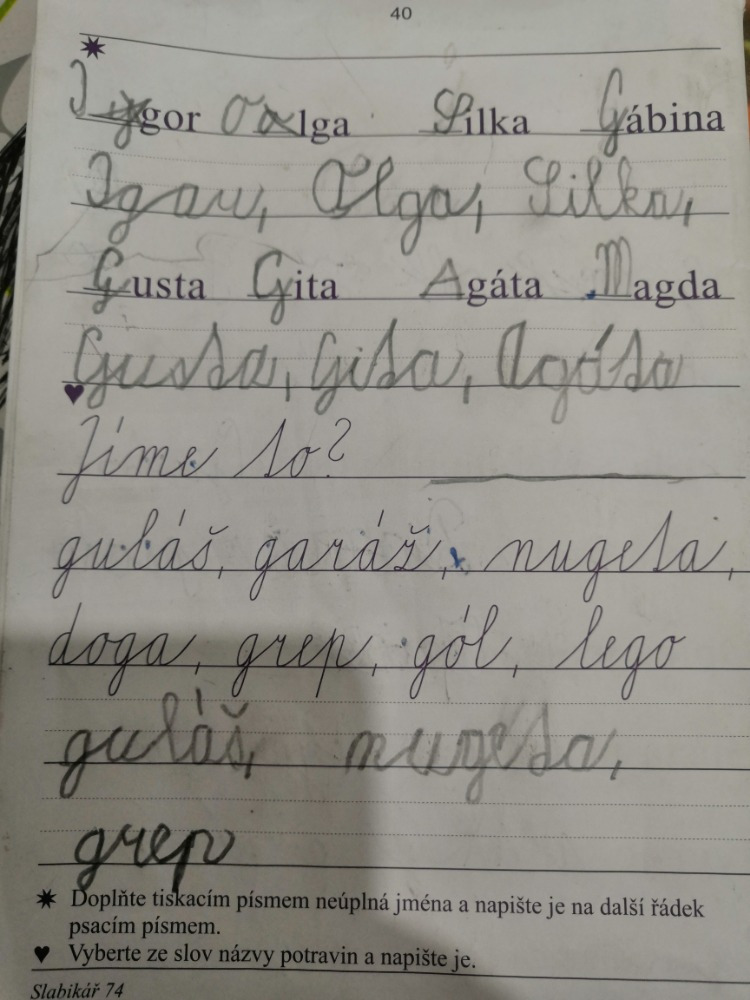 40
Igor Olga Silka Gábina
Igor, Olga, Silka,
Gusta Gita Agáta Magda
Gusta, Gita, Agáta
Jíme to?
guláš, garáž, nugeta,
doga, grep, gól, lego
guláš, nugeta,
grep
Doplňte tiskacím písmem neúplná jména a napište je na další řádek
psacím písmem.
Vyberte ze slov názvy potravin a napište je.
Slabikář 74